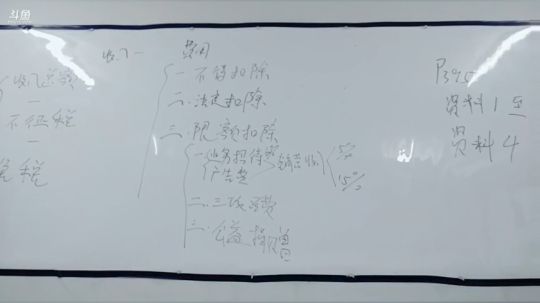 斗鱼
收入一 费用
收入总额
一
不征税
一
免税
一 不得扣除
二. 法定扣除
三. 限额扣除
一 业务招待费 销售收 5‰
广告费 15%
二. 三项经费
三. 公益捐赠
P395
资料1至
资料4